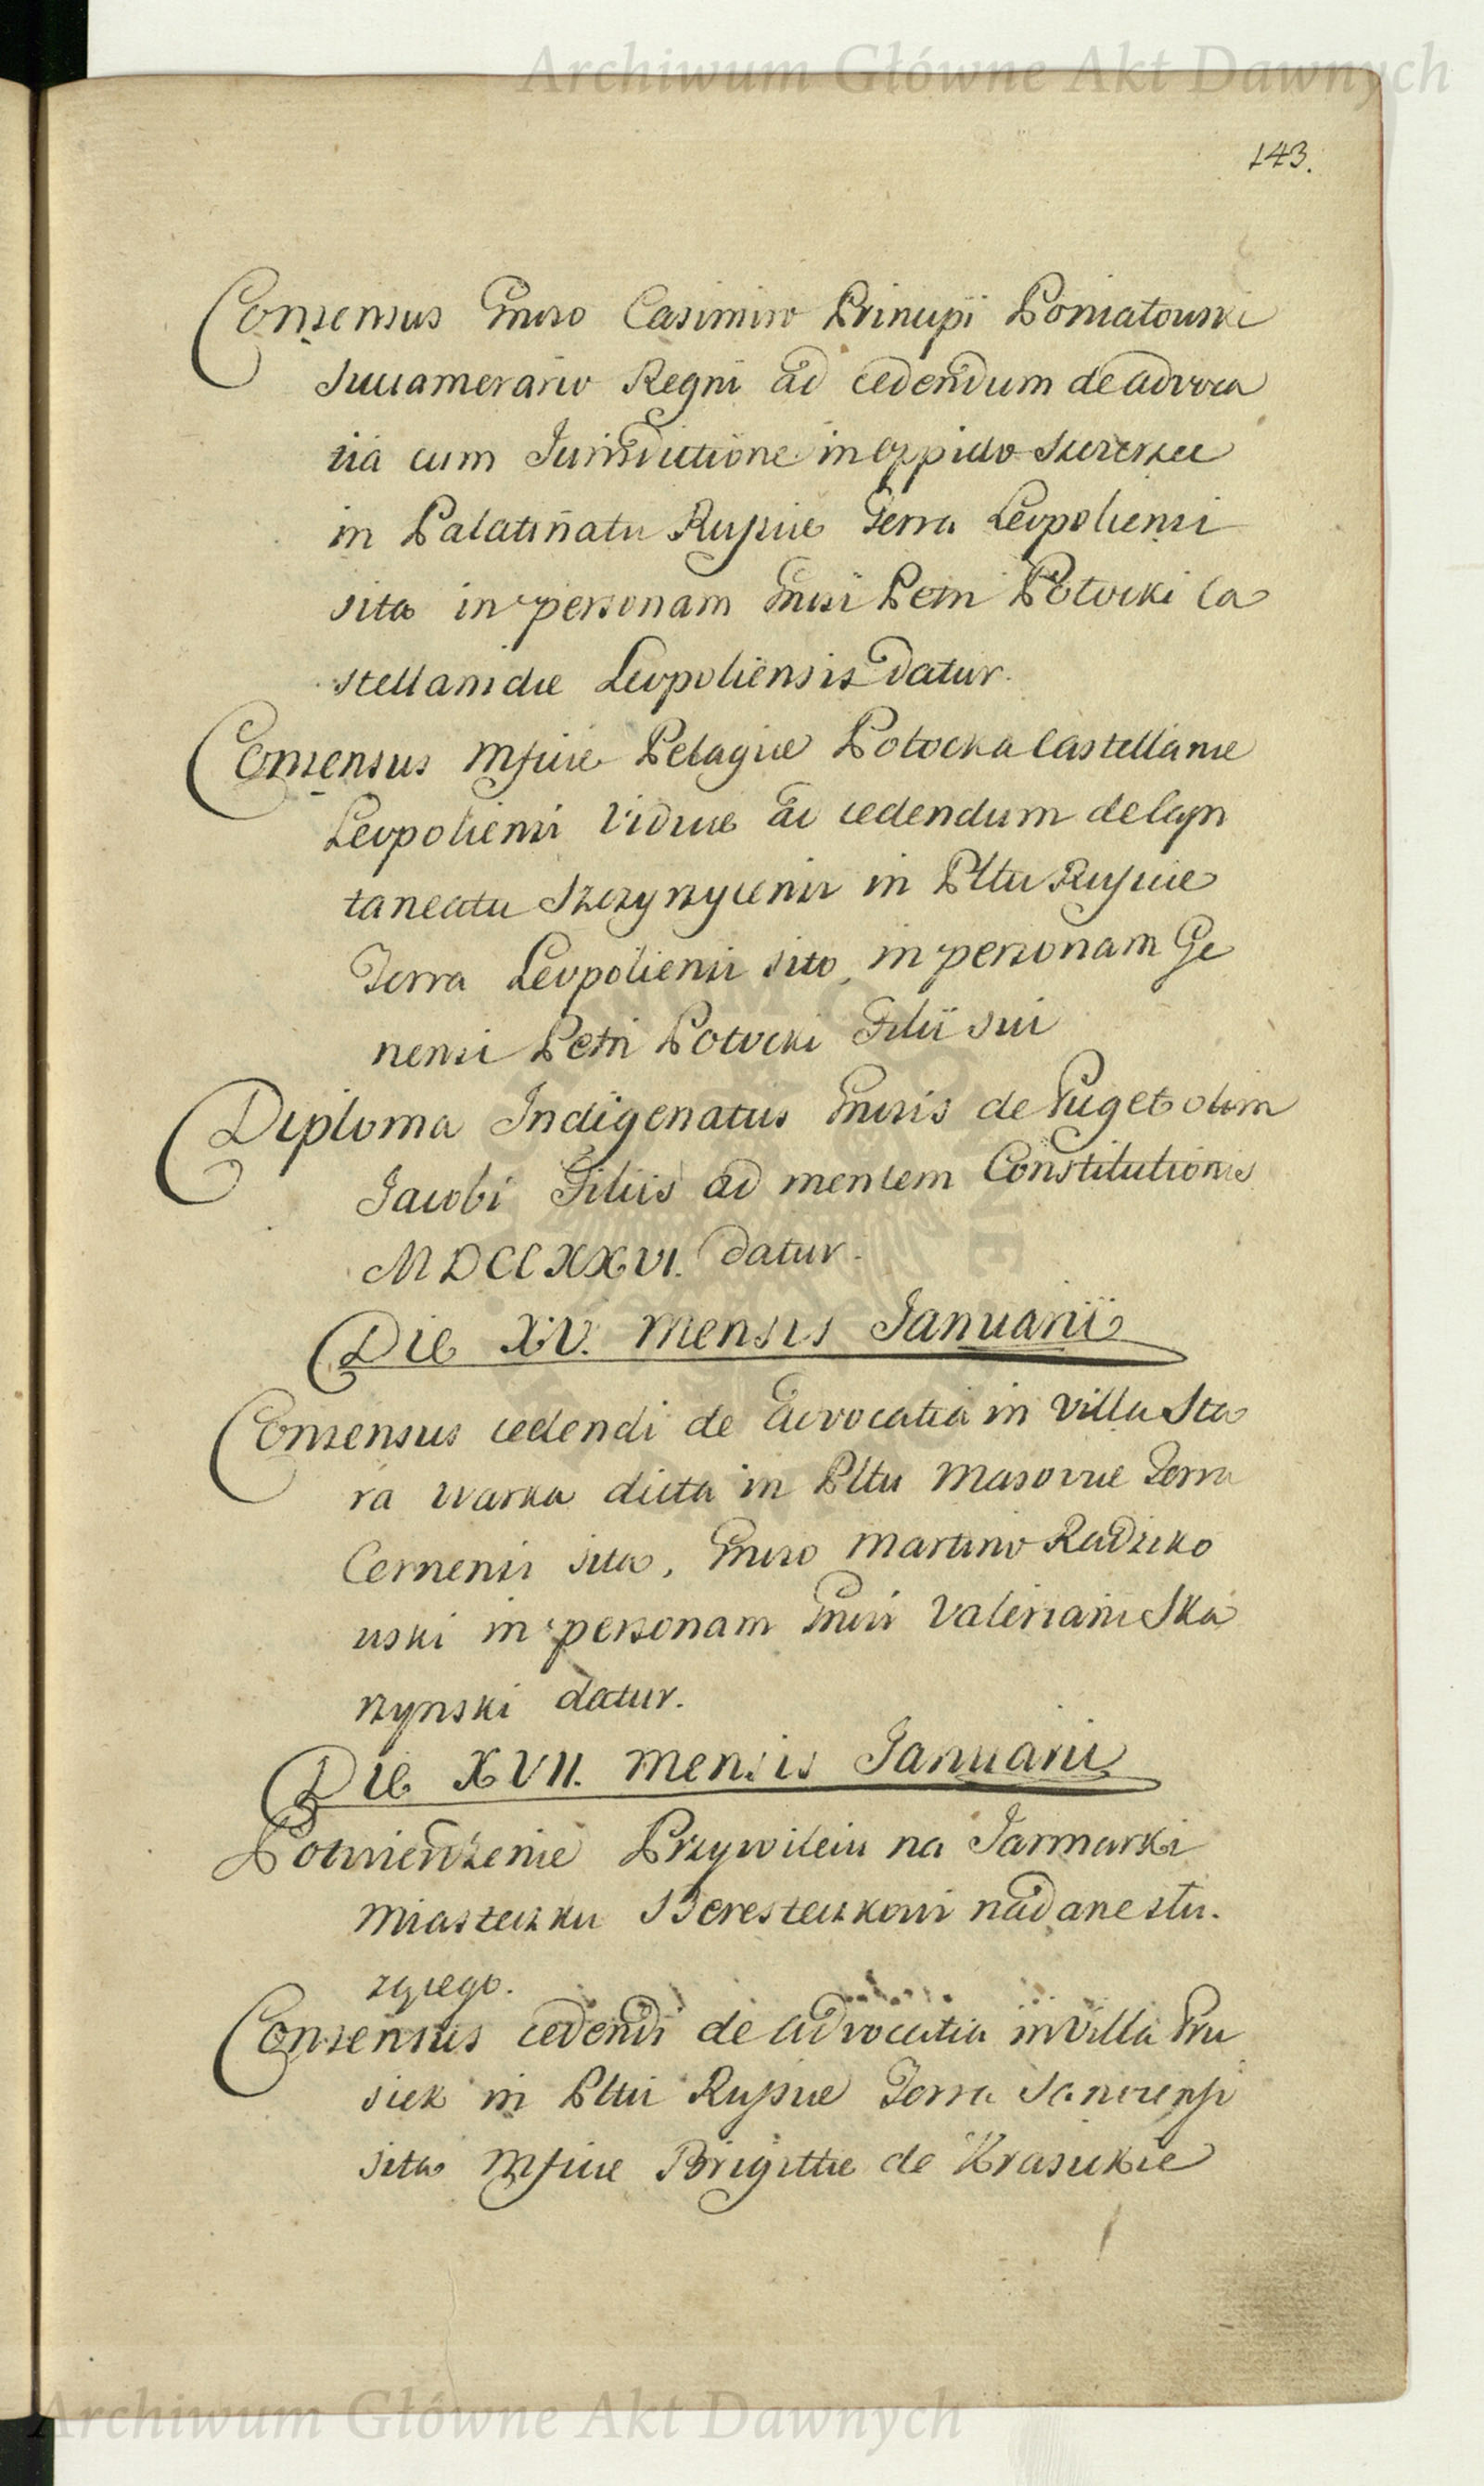 Archiwum Główne Akt Dawnych
143.
Consensus Gnroso Casimiro Principi Poniatowski
Succamerario Regni ad cedendum de advoca
tia cum Jurisdictione in oppido Szczerzec
in Palatinatu Russiæ Terra Leopoliensi
sita in personam Gnrosi Petri Potocki Ca
stellanidæ Leopoliensis datur.
Consensus Mfcæ Pelagiæ Potocka Castellanæ
Leopoliensi Viduæ ad cedendum de Capi
taneatu Szczyrzycensi in Pltu Russiæ
Terra Leopoliensi sito, in personam Ge
nerosi Petri Potocki Filii sui
Diploma Indigenatus Gnrosis de Puget olim
Jacobi Filiis ad mentem Constitutionis
MDCCLXXVI. datur.
Die XV. Mensis Januarii
Consensus cedendi de Advocatia in Villa Sta
ra Warka dicta in Pltu Masoviæ Terra
Cernensi sita, Gnroso Martino Radziko
wski in personam Gnrosi Valeriani Ska
rzynski datur.
Die XVII. Mensis Januarii
Potwierdzenie Przywileiu na Jarmarki
Miasteczku Beresteczkowi nadane słu.
zącego.
Consensus cedendi de advocatia in Villa Pru
siek in Pltu Russiæ Terra Sanocensi
sita Mfcæ Brigittæ de Krasickie
Archiwum Główne Akt Dawnych